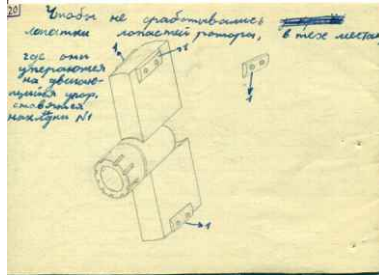 20
Чтобы не срабатывались
лопатки лопастей ротора, в тех местах
где они
упераются
на двигаю-
щийся упор,
ставятся
накладки №1
1
1
1
1